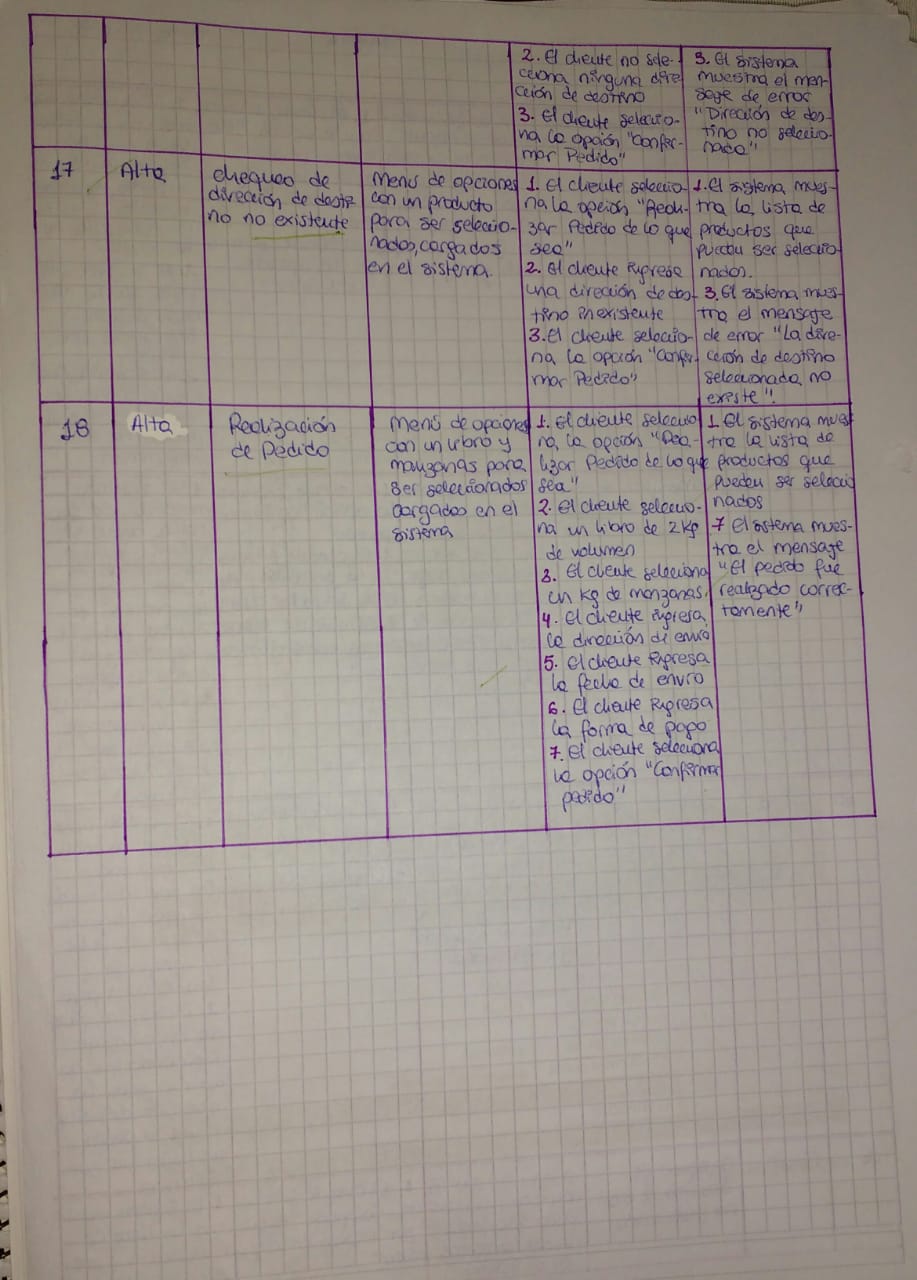 2. El cliente no sele-
cciona ninguna dire
cción de destino
3. El cliente seleccio-
na la opción "Confir-
mar Pedido"
3. El sistema
muestra el men-
saje de error
"Dirección de des-
tino no seleccio-
nada"
17
Alta
chequeo de
dirección de desti
no no existente
Menú de opciones
con un producto
para ser seleccio-
nados, cargados
en el sistema.
1. El cliente seleccio-
na la opción "Reali-
zar Pedido de lo que
sea"
2. El cliente ingrese
una dirección de des-
tino inexistente
3. El cliente seleccio-
na la opción "Confir
mar Pedido"
1. El sistema mues-
tra la lista de
productos que
pueden ser seleccio
nados.
3. El sistema mues-
tra el mensaje
de error "La dire-
cción de destino
seleccionada no
existe".
18
Alta
Realización
de Pedido
Menú de opciones
con un libro y
manzanas para
ser seleccionados
cargados en el
sistema
1. El cliente seleccio
na la opción "Rea-
lizar Pedido de lo que
sea"
2. El cliente seleccio-
na un libro de 2 kg
de volumen
3. El cliente selecciona
un kg de manzanas.
4. El cliente ingresa
la dirección de envío
5. El cliente ingresa
la fecha de envío
6. El cliente ingresa
la forma de pago
7. El cliente selecciona
la opción "Confirmar
pedido"
1. El sistema mues
tra la lista de
productos que
pueden ser selecci
nados
7 El sistema mues-
tra el mensaje
"El pedido fue
realizado correc-
tamente"